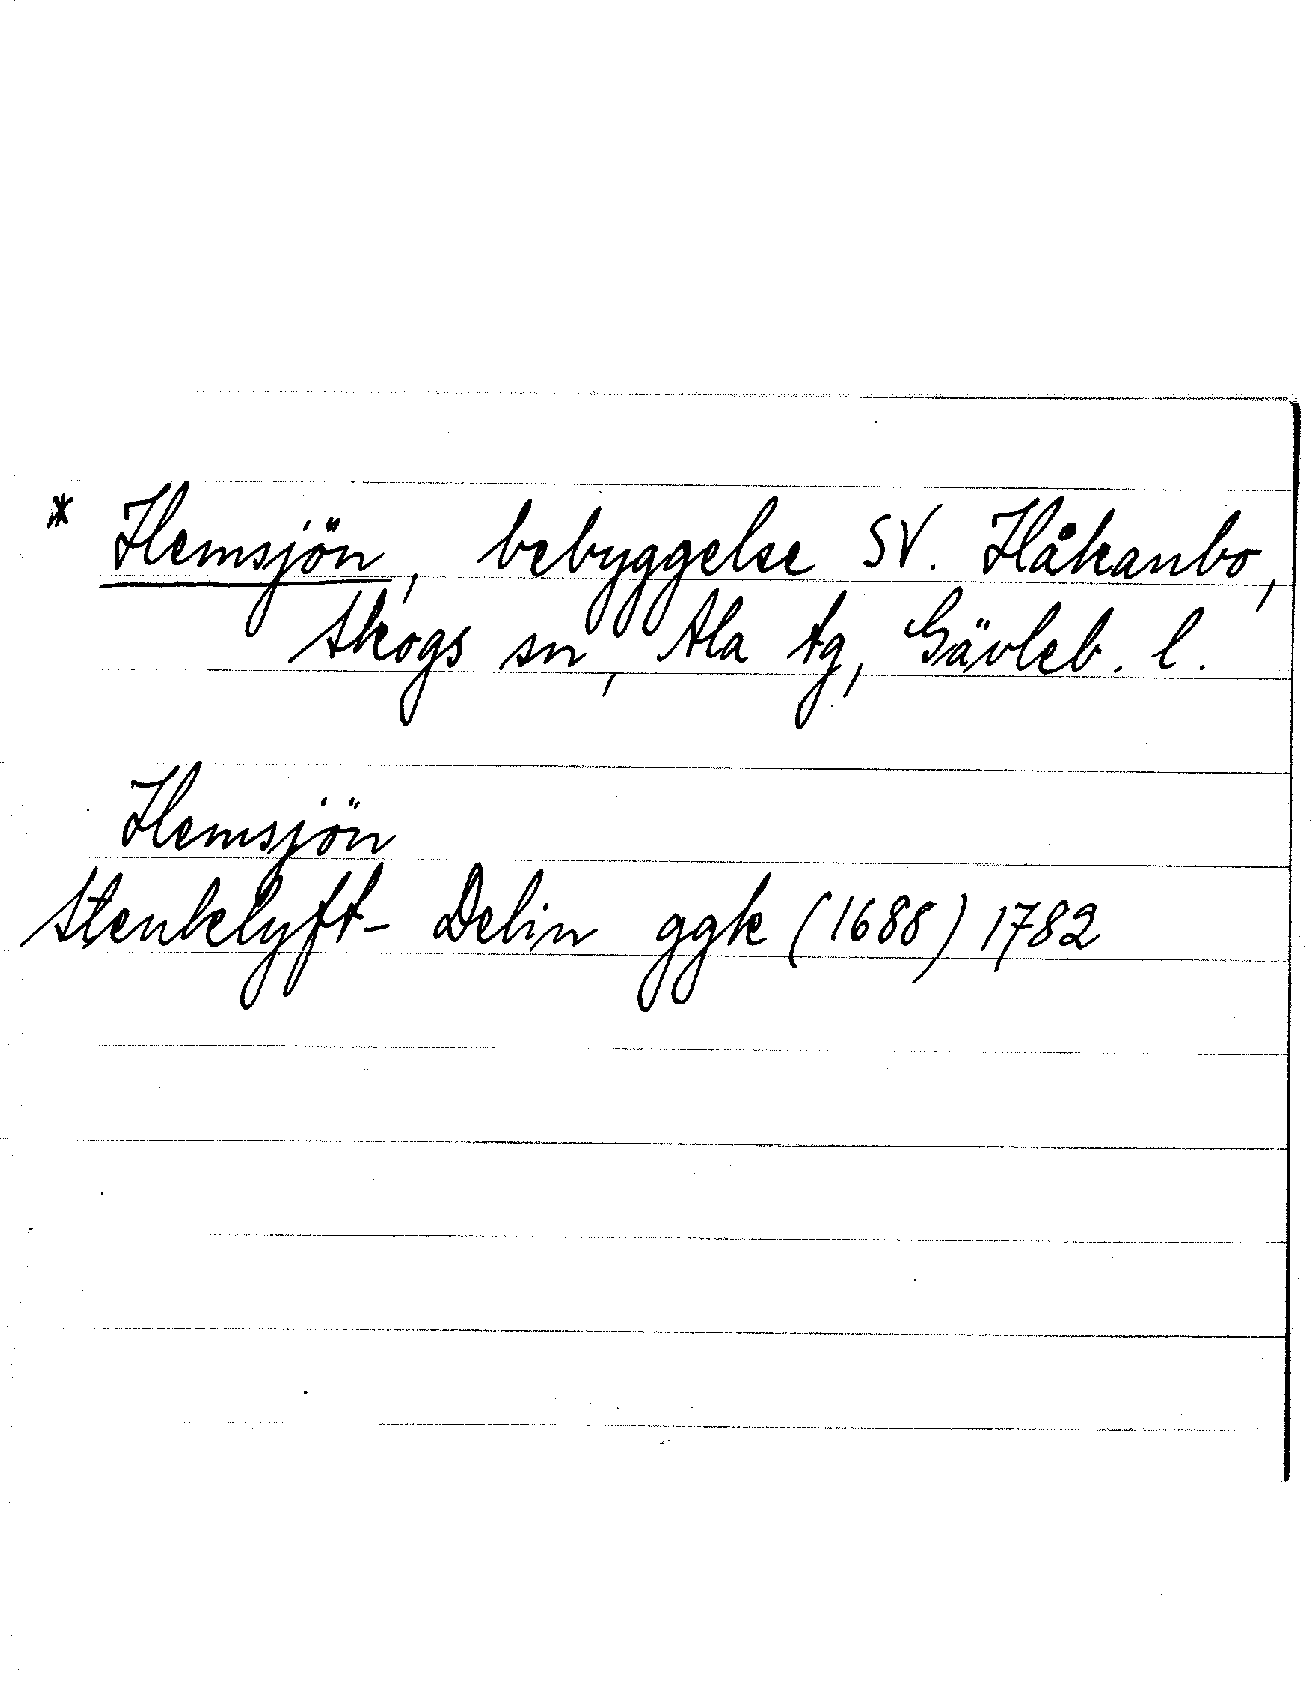 * Hemsjön, bebyggelse SV. Håkanbo,
Skogs sn, Ala tg, Gävleb. l.
Hemsjön
Stenklyft- Delin ggk (1688) 1782